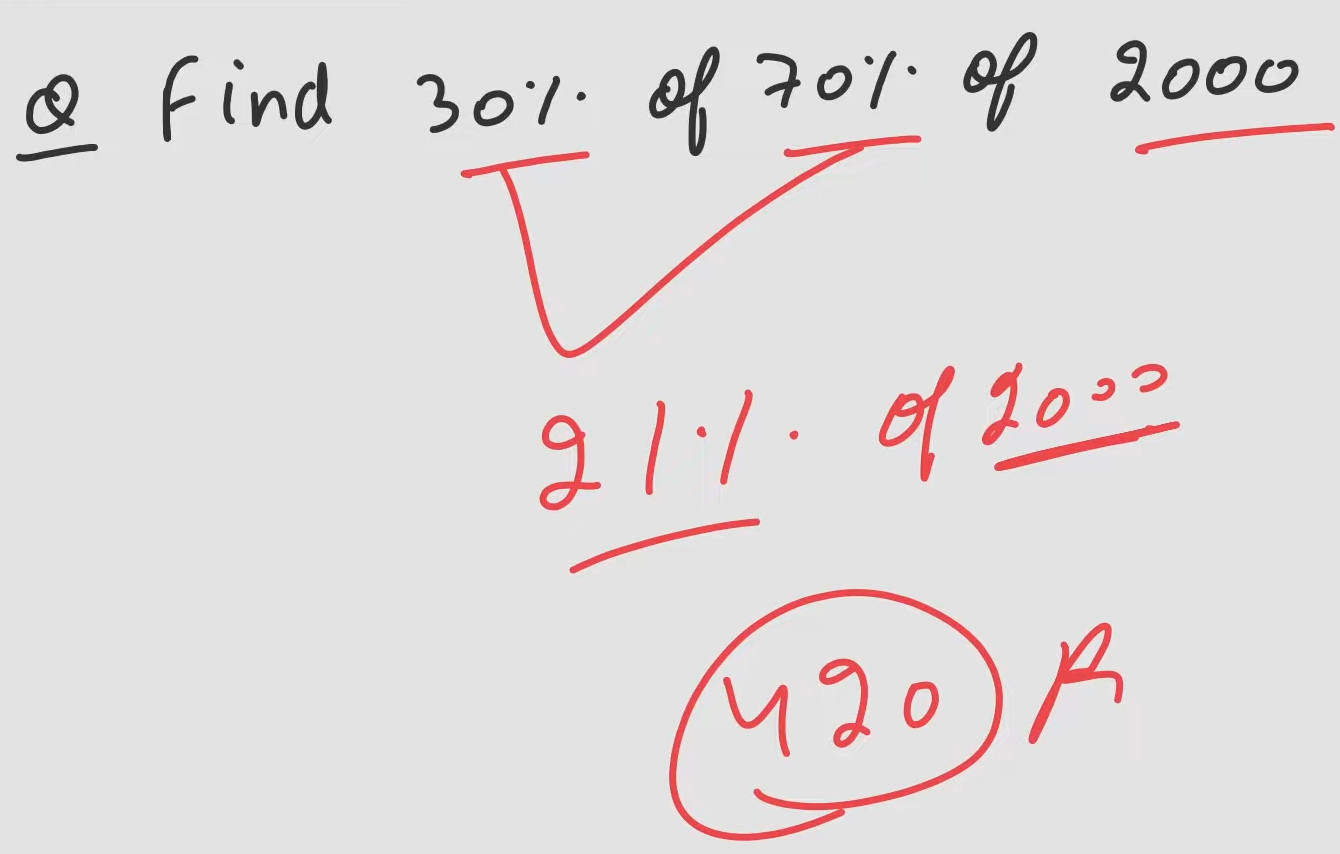 Q Find 30% of 70% of 2000
21% of 2000
420